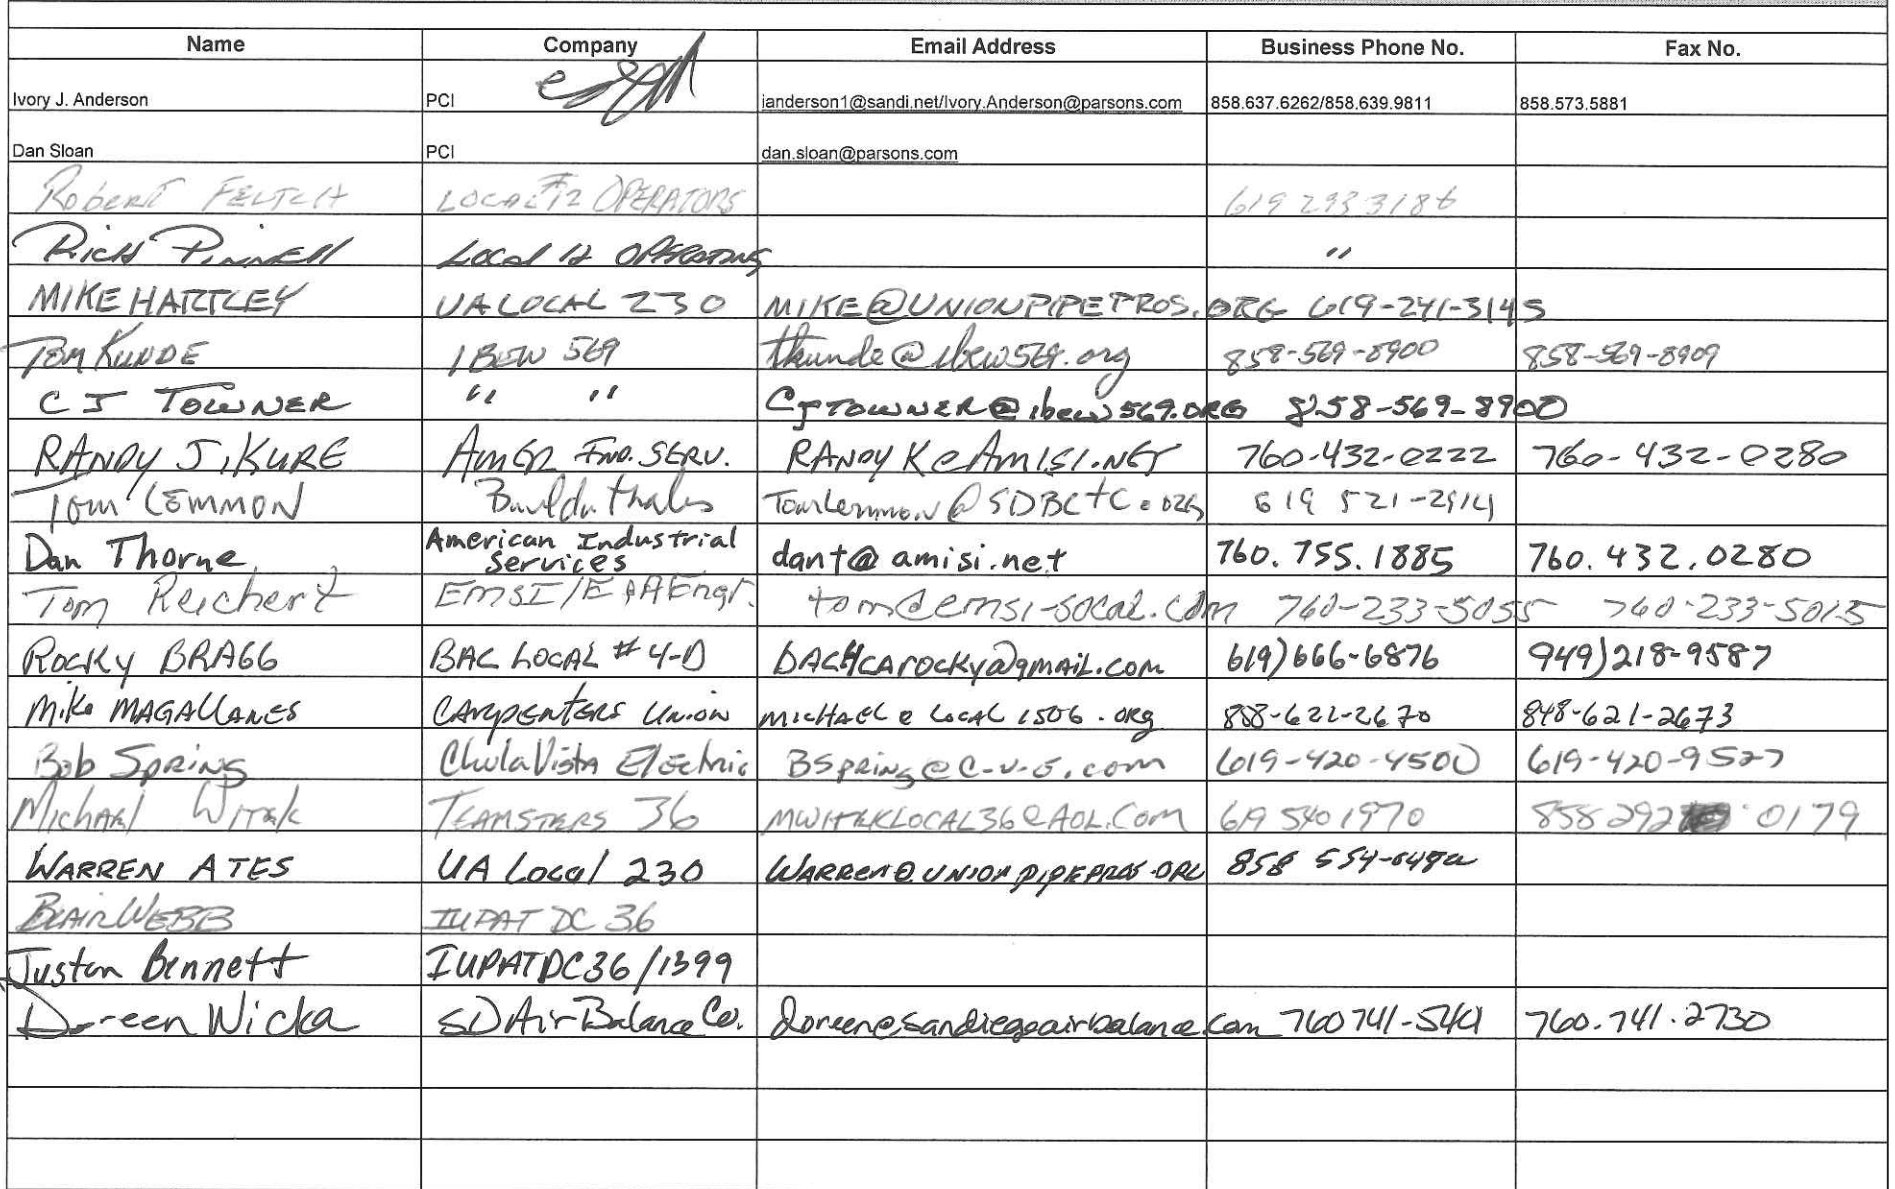 Name Company Email Address Business Phone No. Fax No.
Ivory J. Anderson PCI ianderson1@sandi.net/Ivory.Anderson@parsons.com 858.637.6262/858.639.9811 858.573.5881
Dan Sloan PCI dan.sloan@parsons.com
Robert FELTCH LOCAL #12 OPERATORS 619 293 3186
Rich Pinnell Local 12 OPERATING "
MIKE HARTLEY UA LOCAL 230 MIKE@UNIONPIPEPROS.ORG 619-241-3145
TOM KUNDE IBEW 569 tkunde@ibew569.org 858-569-8900 858-569-8909
CJ TOWNER " " CJTOWNER@ibew569.ORG 858-569-8900
RANDY J. KURE AMER IND. SERV. RANDYK@AMISI.NET 760-432-0222 760-432-0280
Tom LEMMON TomLemmon@SDBCTC.org 619 521-2914
Dan Thorne American Industrial Services dant@amisi.net 760.755.1885 760.432.0280
Tom Reichert EMSI/EPAEngr. tom@emsi-socal.com 760-233-5055 760-233-5015
ROCKY BRAGG BAC LOCAL #4-D BAC4CAROCKY@gmail.com 619)666-6876 949)218-9587
Mike MAGALLANES CARPENTERS UNION MICHAEL@LOCAL1506.ORG 858-621-2670 848-621-2673
Bob SPRING Chula Vista Electric BSpring@C-V-E.com 619-420-4500 619-420-9527
Michael Witek TEAMSTERS 36 MWITEKLOCAL36@AOL.COM 619 540 1970 858 292 0179
WARREN ATES UA Local 230 WARREN@UNIONPIPEPROS.ORG 858 554-0482
BLAIR WEBB IUPAT DC 36
Juston Bennett IUPATDC36/1399
Doreen Wicka SD Air Balance Co. doreen@sandiegoairbalance.com 760 741-5401 760.741.2730